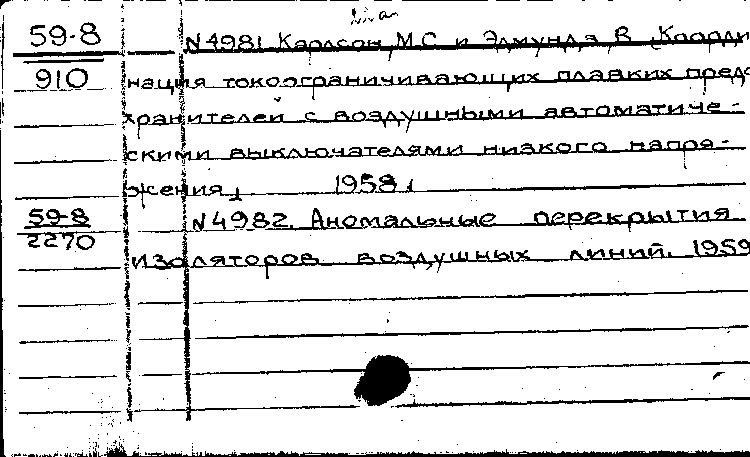 59-8 N4981 Карлсон, М.С. и Эдмундз В. Коорди
910 нация токоограничивающих плавких пред
хранителей с воздушными автоматиче-
скими выключателями низкого напря-
жения, 1958,
59-8 N4982. Аномальные перекрытия
2270
изоляторов воздушных линий. 1959